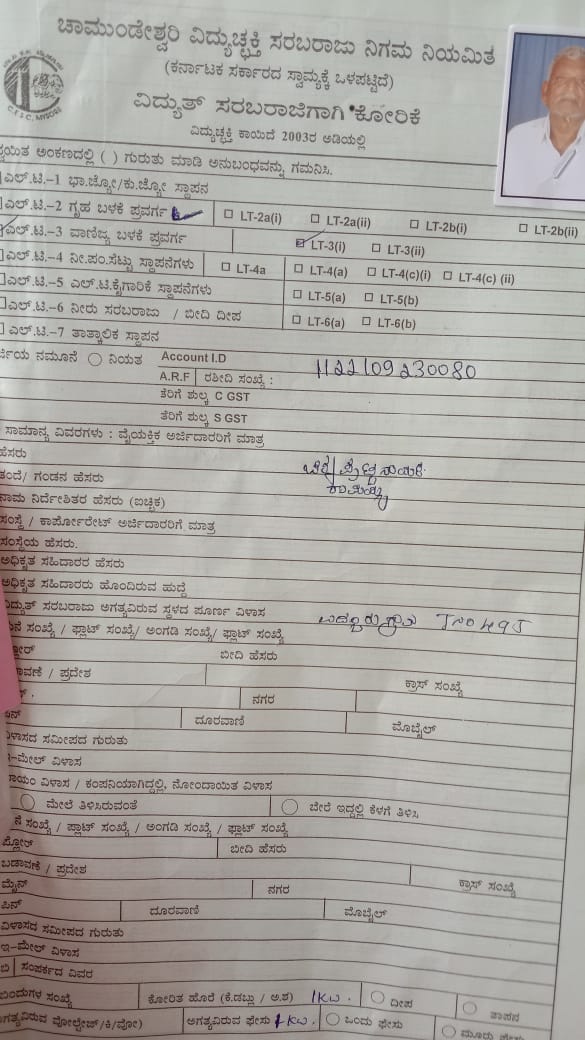 ಚಾಮುಂಡೇಶ್ವರಿ ವಿದ್ಯುಚ್ಛಕ್ತಿ ಸರಬರಾಜು ನಿಗಮ ನಿಯಮಿತ
(ಕರ್ನಾಟಕ ಸರ್ಕಾರದ ಸ್ವಾಮ್ಯಕ್ಕೆ ಒಳಪಟ್ಟಿದೆ)
ವಿದ್ಯುತ್ ಸರಬರಾಜಿಗಾಗಿ ಕೋರಿಕೆ
ವಿದ್ಯುಚ್ಛಕ್ತಿ ಕಾಯಿದೆ 2003ರ ಅಡಿಯಲ್ಲಿ
C.E.S.C, MYSORE
ಅಂಕಣದಲ್ಲಿ ( ) ಗುರುತು ಮಾಡಿ ಅನುಬಂಧವನ್ನು ಗಮನಿಸಿ.
ಎಲ್.ಟಿ.-1 ಭಾ.ಜ್ಯೋ/ಕು.ಜ್ಯೋ ಸ್ಥಾಪನ
ಎಲ್.ಟಿ.-2 ಗೃಹ ಬಳಕೆ ಪ್ರವರ್ಗ LT-2a(i) LT-2a(ii) LT-2b(i) LT-2b(ii)
ಎಲ್.ಟಿ.-3 ವಾಣಿಜ್ಯ ಬಳಕೆ ಪ್ರವರ್ಗ LT-3(i) LT-3(ii)
ಎಲ್.ಟಿ.-4 ನೀ.ಪಂ.ಸೆಟ್ಟು ಸ್ಥಾಪನೆಗಳು LT-4a LT-4(a) LT-4(c)(i) LT-4(c) (ii)
ಎಲ್.ಟಿ.-5 ಎಲ್.ಟಿ.ಕೈಗಾರಿಕೆ ಸ್ಥಾಪನೆಗಳು LT-5(a) LT-5(b)
ಎಲ್.ಟಿ.-6 ನೀರು ಸರಬರಾಜು / ಬೀದಿ ದೀಪ LT-6(a) LT-6(b)
ಎಲ್.ಟಿ.-7 ತಾತ್ಕಾಲಿಕ ಸ್ಥಾಪನ
ನಮೂನೆ ನಿಯತ Account I.D
A.R.F ರಶೀದಿ ಸಂಖ್ಯೆ : 1122109230080
ತೆರಿಗೆ ಶುಲ್ಕ C GST
ತೆರಿಗೆ ಶುಲ್ಕ S GST
ಸಾಮಾನ್ಯ ವಿವರಗಳು : ವೈಯಕ್ತಿಕ ಅರ್ಜಿದಾರರಿಗೆ ಮಾತ್ರ
ಹೆಸರು
ತಂದೆ/ ಗಂಡನ ಹೆಸರು
ನಾಮ ನಿರ್ದೇಶಿತರ ಹೆಸರು (ಐಚ್ಛಿಕ)
ಸಂಸ್ಥೆ / ಕಾರ್ಪೋರೇಟ್ ಅರ್ಜಿದಾರರಿಗೆ ಮಾತ್ರ
ಸಂಸ್ಥೆಯ ಹೆಸರು.
ಅಧಿಕೃತ ಸಹಿದಾರರ ಹೆಸರು
ಅಧಿಕೃತ ಸಹಿದಾರರು ಹೊಂದಿರುವ ಹುದ್ದೆ
ವಿದ್ಯುತ್ ಸರಬರಾಜು ಅಗತ್ಯವಿರುವ ಸ್ಥಳದ ಪೂರ್ಣ ವಿಳಾಸ
ಸಂಖ್ಯೆ / ಫ್ಲಾಟ್ ಸಂಖ್ಯೆ/ ಅಂಗಡಿ ಸಂಖ್ಯೆ/ ಫ್ಲಾಟ್ ಸಂಖ್ಯೆ
ಬೀದಿ ಹೆಸರು
/ ಪ್ರದೇಶ ಕ್ರಾಸ್ ಸಂಖ್ಯೆ
ನಗರ
ದೂರವಾಣಿ ಮೊಬೈಲ್
ವಿಳಾಸದ ಸಮೀಪದ ಗುರುತು
ಇ-ಮೇಲ್ ವಿಳಾಸ
ವಿಳಾಸ / ಕಂಪನಿಯಾಗಿದ್ದಲ್ಲಿ, ನೋಂದಾಯಿತ ವಿಳಾಸ
ಮೇಲೆ ತಿಳಿಸಿರುವಂತೆ ಬೇರೆ ಇದ್ದಲ್ಲಿ ಕೆಳಗೆ ತಿಳಿಸಿ
ಸಂಖ್ಯೆ / ಪ್ಲಾಟ್ ಸಂಖ್ಯೆ / ಅಂಗಡಿ ಸಂಖ್ಯೆ / ಫ್ಲಾಟ್ ಸಂಖ್ಯೆ
ಫ್ಲೋರ್ ಬೀದಿ ಹೆಸರು
ಬಡಾವಣೆ / ಪ್ರದೇಶ ಕ್ರಾಸ್ ಸಂಖ್ಯೆ
ಮೈನ್ ನಗರ
ಪಿನ್ ದೂರವಾಣಿ ಮೊಬೈಲ್
ವಿಳಾಸದ ಸಮೀಪದ ಗುರುತು
ಇ-ಮೇಲ್ ವಿಳಾಸ
ಬಿ ಸಂಪರ್ಕದ ವಿವರ
ಬಿಂದುಗಳ ಸಂಖ್ಯೆ ಕೋರಿತ ಹೊರೆ (ಕೆ.ಡಬ್ಲು / ಅ.ಶ) 1KW. ದೀಪ ತಾಪನ
ಅಗತ್ಯವಿರುವ ವೋಲ್ಟೇಜ್/ಕಿ/ವೋ) ಅಗತ್ಯವಿರುವ ಫೇಸು 1KW. ಒಂದು ಫೇಸು ಮೂರು ಫೇಸು